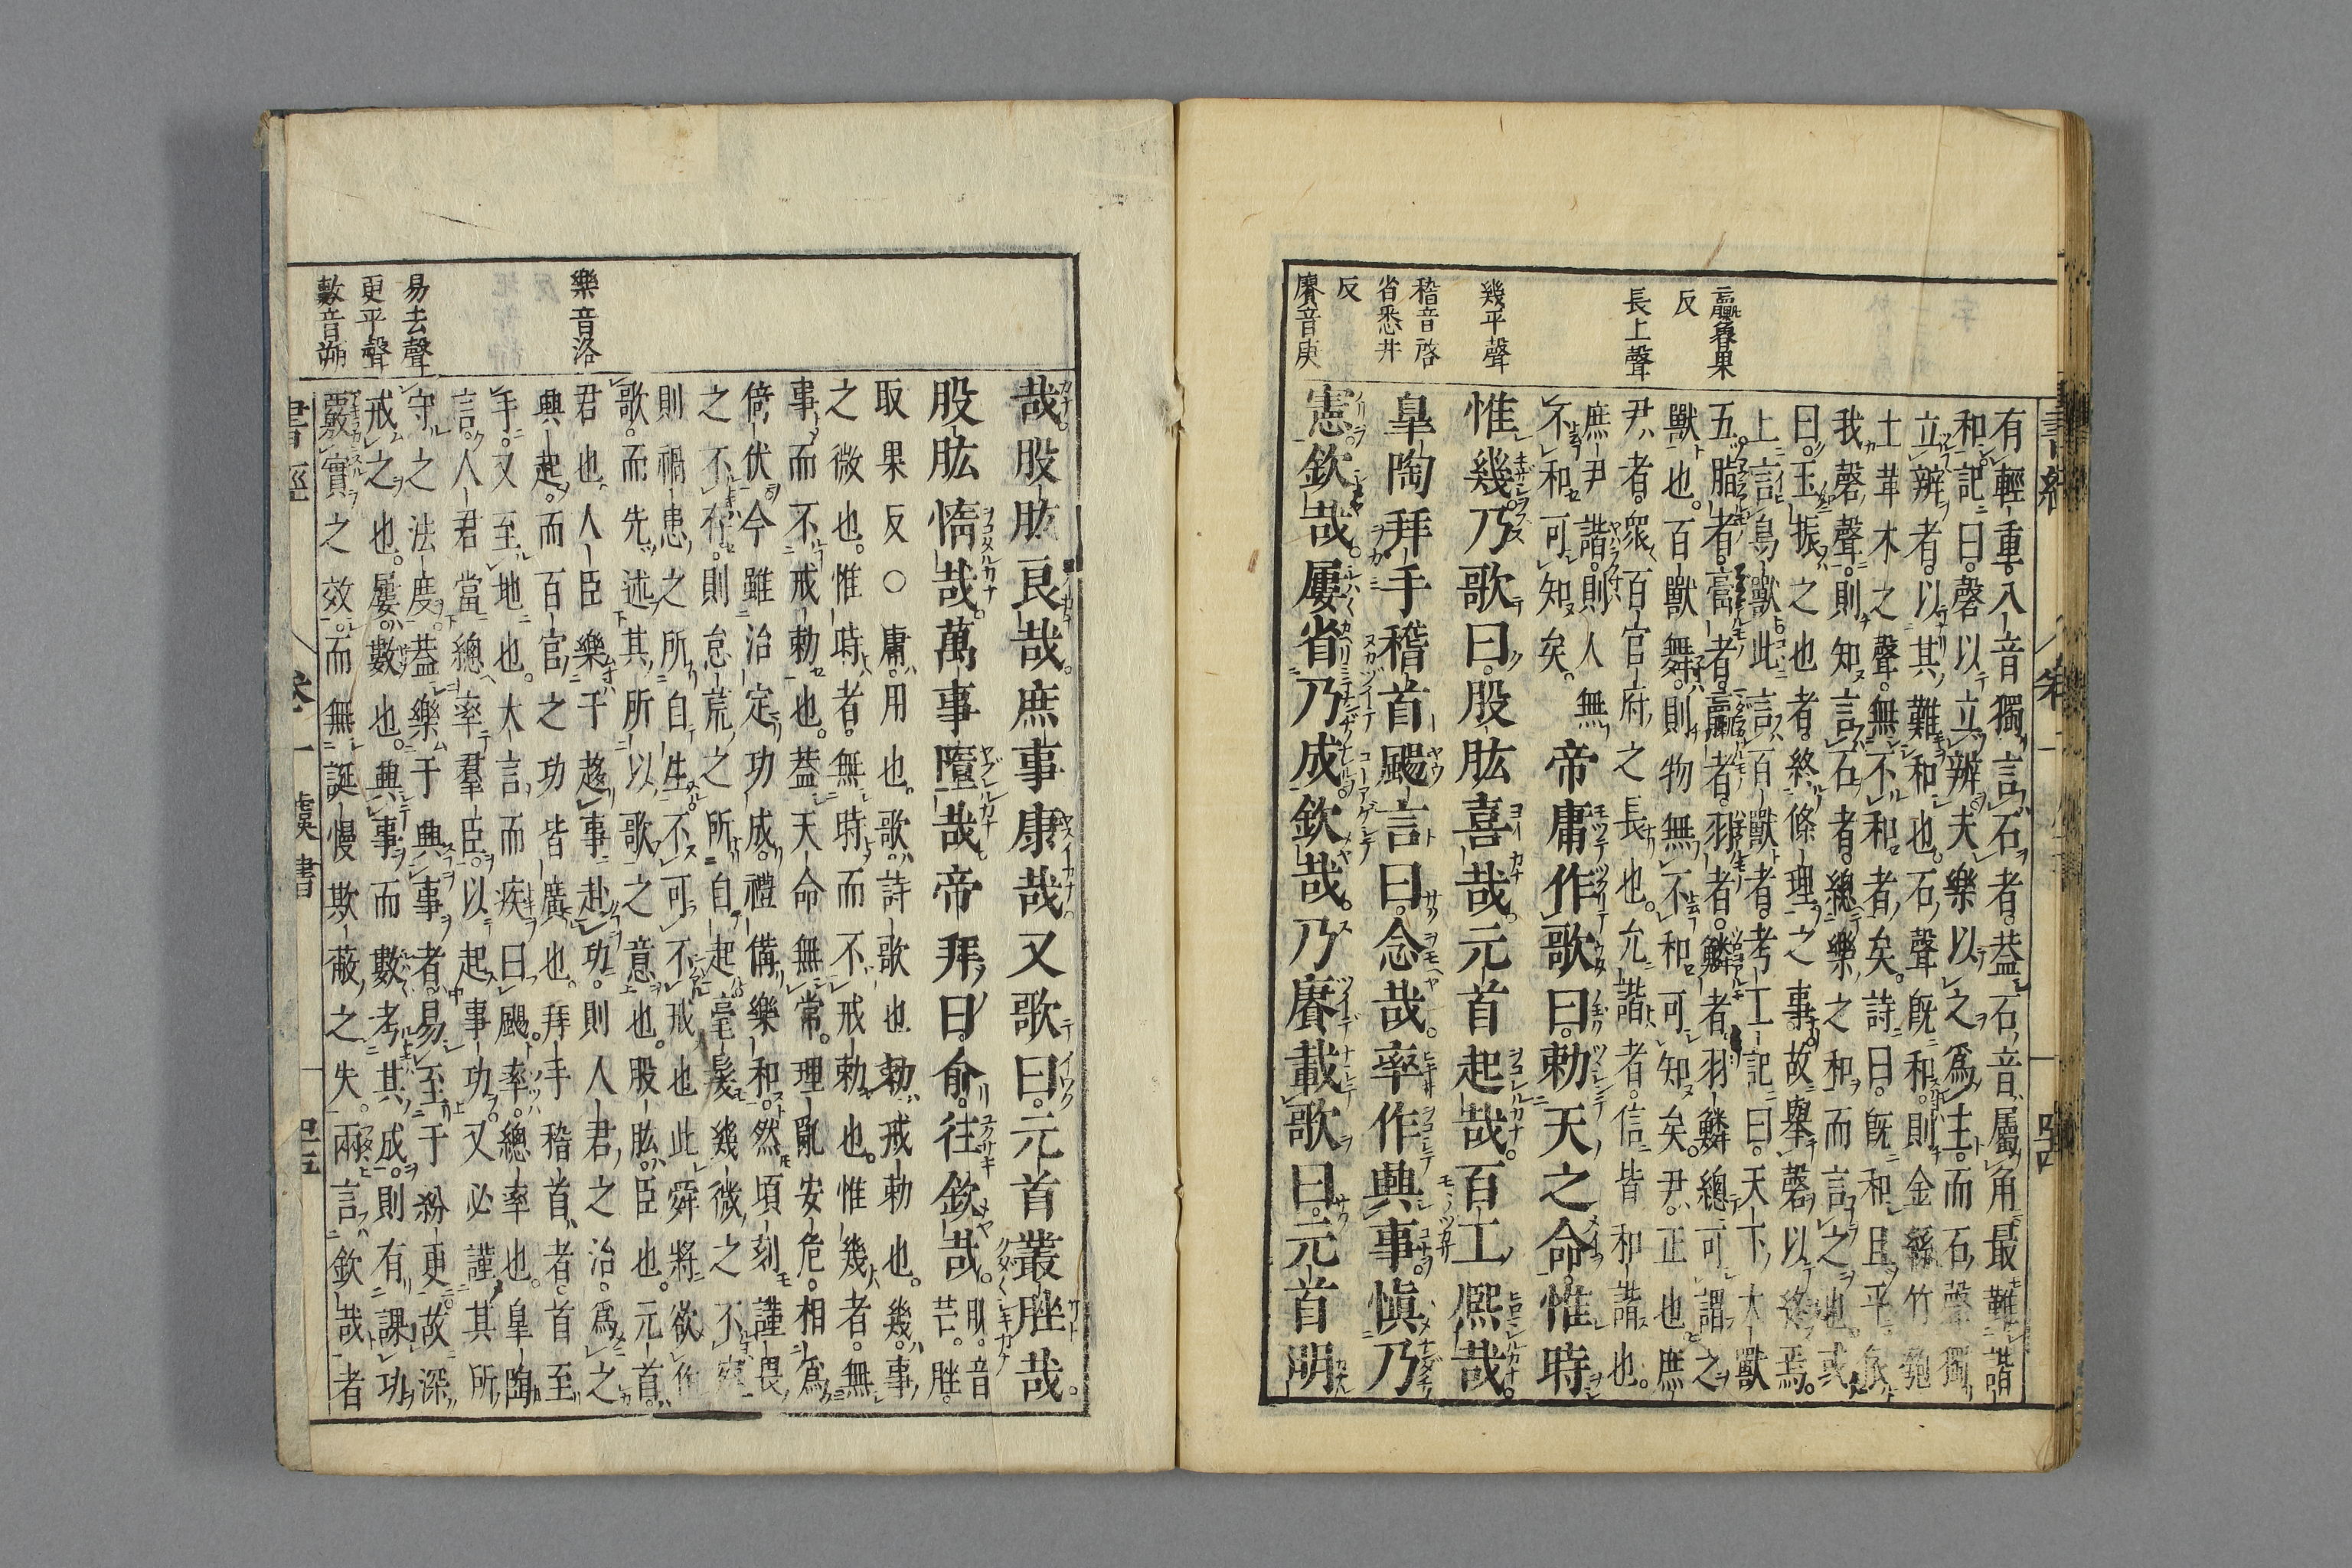 臝魯果
反
長上聲
幾平聲
稽音啓
省悉井
反
賡音庚
有輕重八音獨言石者葢石音屬角最難諧
和記曰磬以立辨夫樂以立之爲主而石聲獨
立辨者以其難和也石聲旣和則金絲竹匏
土革木之聲無不和者矣詩曰旣和且平依
我磬聲則知言石者總樂之和而言之也或
曰玉振之也者終條理之事故擧磬以終焉
上言鳥獸此言百獸者考工記曰天下大獸
五脂者膏者臝者羽者鱗者羽鱗總可謂之
獸也百獸舞則物無不和可知矣尹正也庶
尹者衆百官府之長也允諧者信皆和諧也
庶尹諧則人無
不和可知矣
帝庸作歌曰勑天之命惟時
惟幾乃歌曰股肱喜哉元首起哉百工熈哉
皐陶拜手稽首颺言曰念哉率作興事愼乃
憲欽哉屢省乃成欽哉乃賡載歌曰元首明
樂音洛
易去聲
更平聲
數音朔
哉股肱良哉庶事康哉又歌曰元首叢脞哉
股肱惰哉萬事墮哉帝拜曰俞往欽哉
肱音
芒脞
取果反○庸用也歌詩歌也勑戒勑也幾事
之微也惟時者無時而不戒勑也惟幾者無
事而不戒勑也葢天命無常理亂安危相爲
倚伏今雖治定功成禮備樂和然頃刻謹畏
之不存則怠荒之所自起毫髮幾微之不察
則禍患之所自生不可不戒也此舜將欲作
歌而先述其所以歌之意也股肱臣也元首
君也人臣樂于趨事赴功則人君之治爲之
興起而百官之功皆廣也拜手稽首者首至
手又至地也大言而疾曰颺率總率也皐陶
言人君當總率羣臣以起事功又必謹其所
守之法度葢樂于興事者易至于紛更故深
戒之也屢數也興事而數考其成則有課功
覈實之效而無誕慢欺蔽之失兩言欽哉者
書經
卷一
虞書